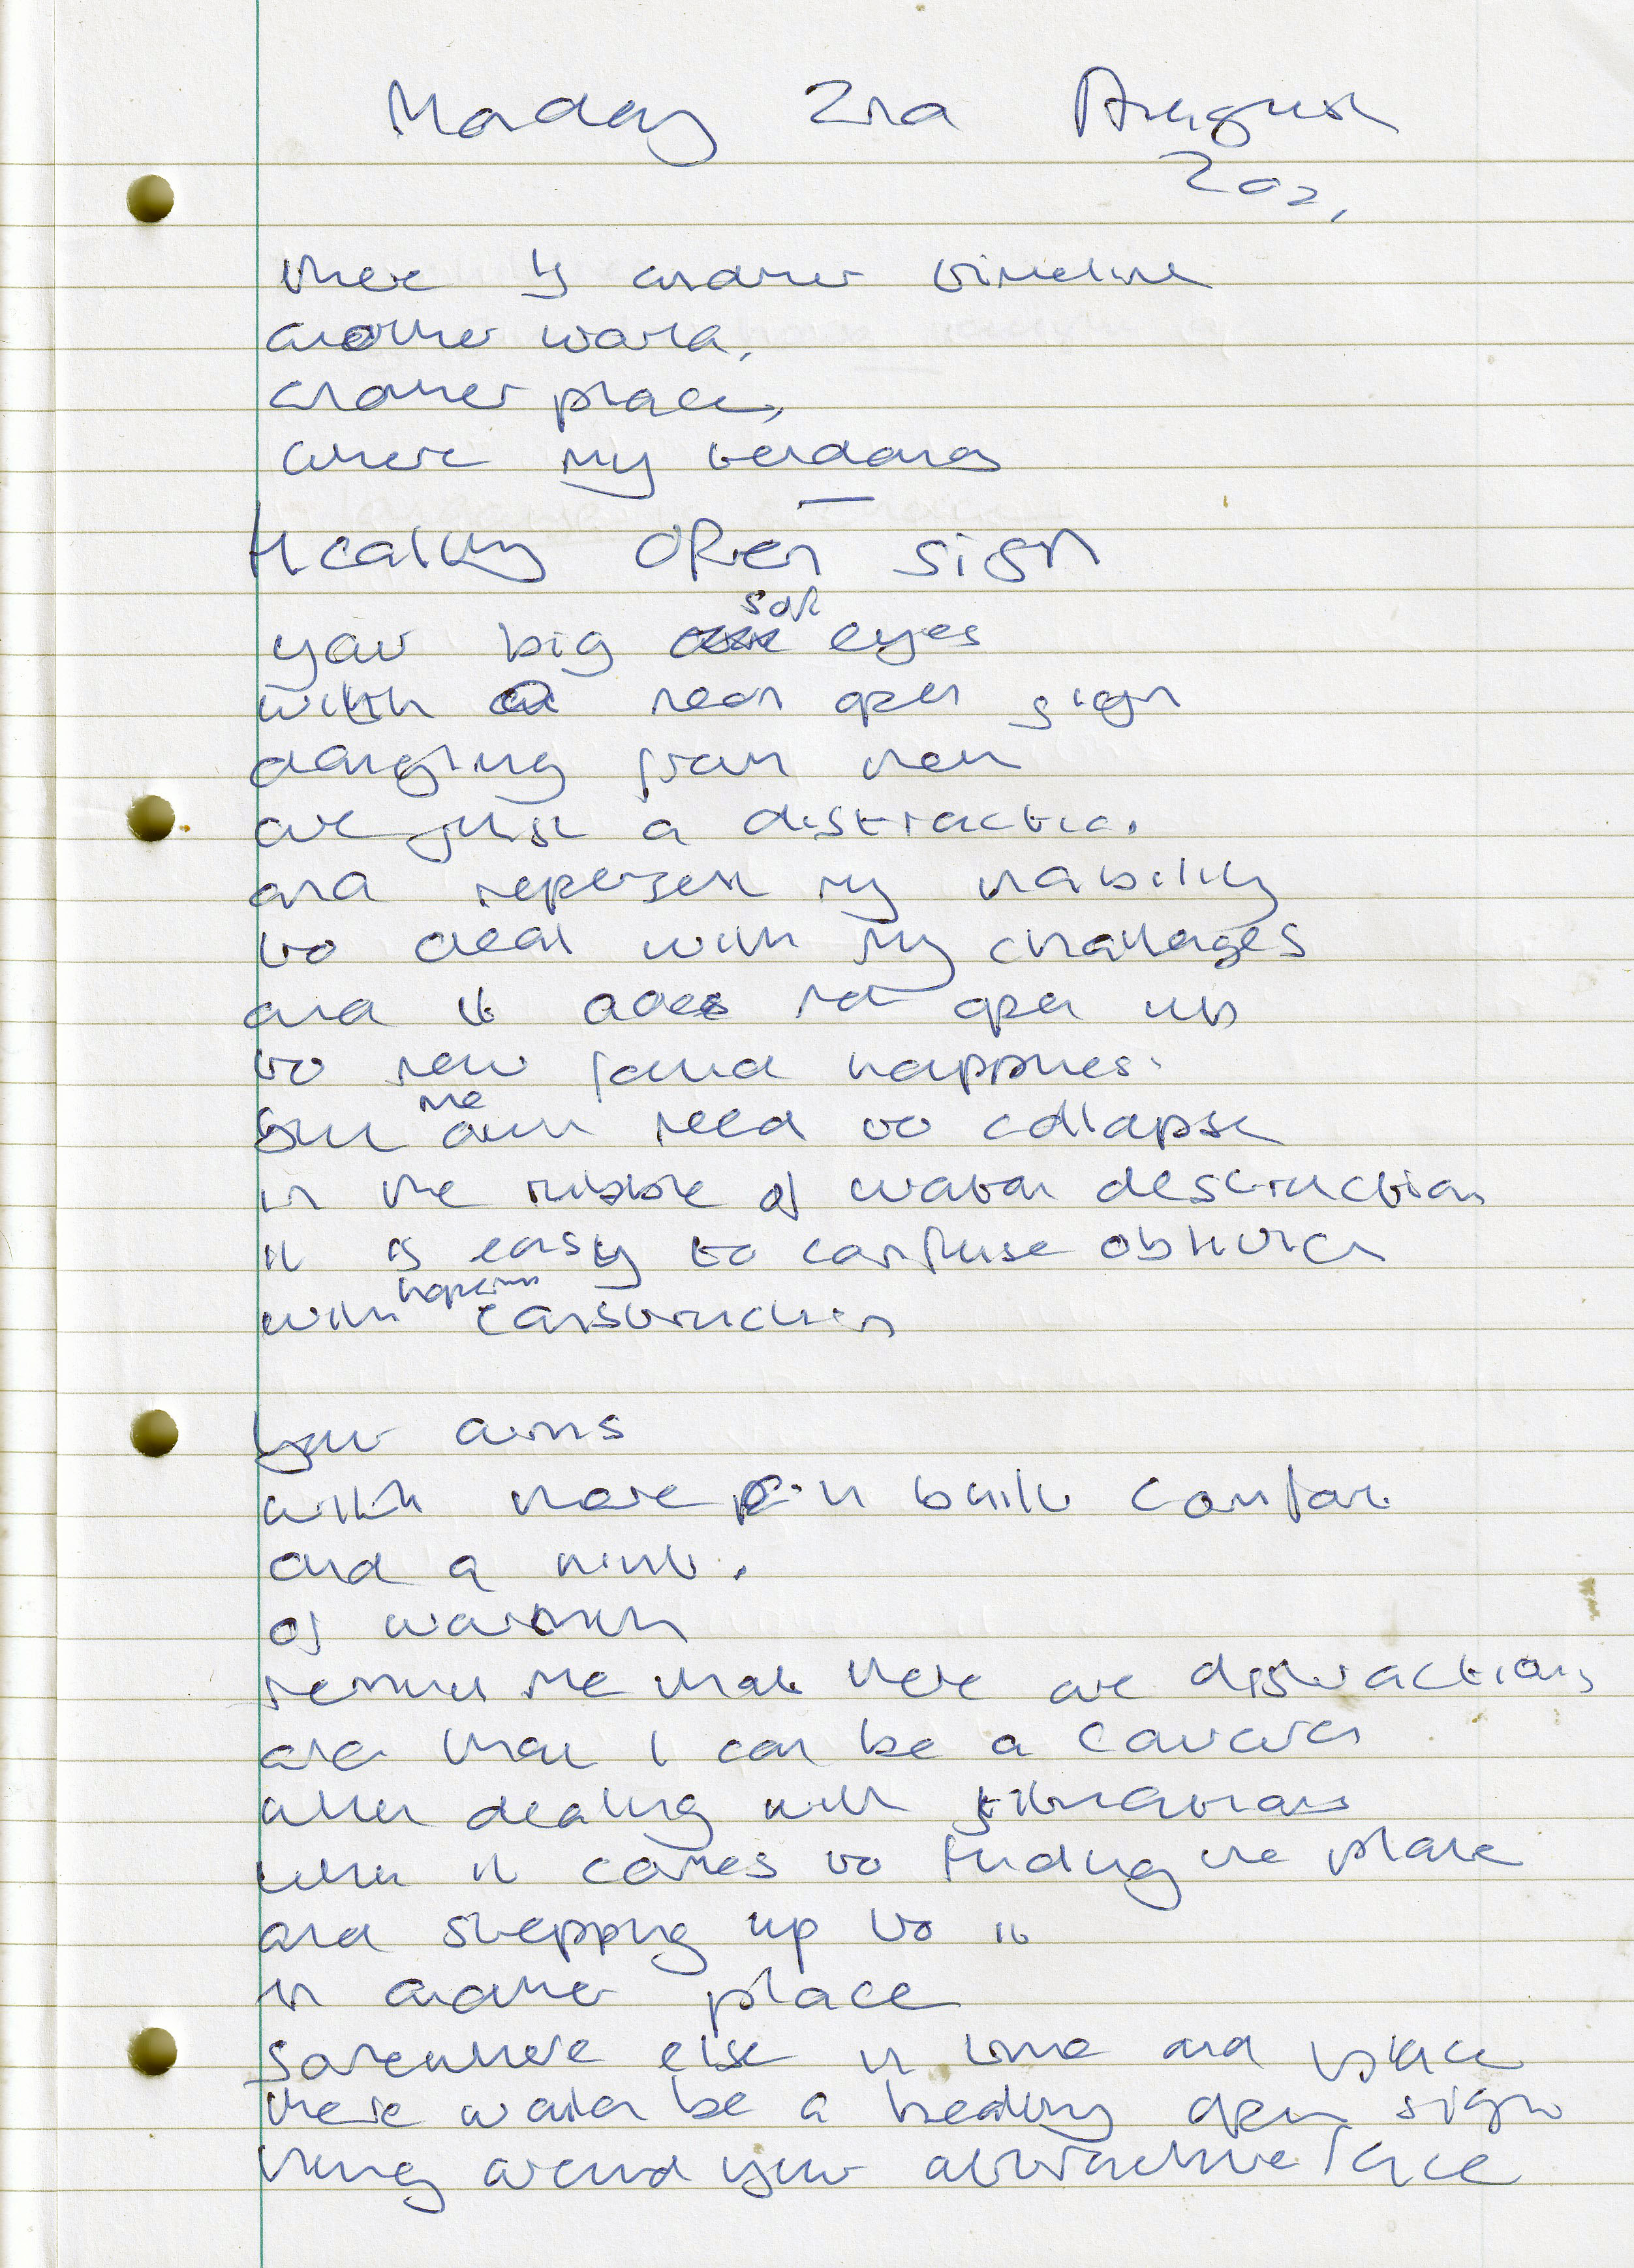 Monday 2nd August
202,
there is another timeline
another world,
another place,
where my
Healing Open sign
your big soft eyes
with neon open sign
dangling from them
are just a distraction.
and represent my inability
to deal with my challenges
and it does not open up
to new found happiness.
but the need to collapse
in the rubble of wanton destruction
it is easy to confuse oblivion
with hopeful construction
your arms
with there built comfort
and a hint.
of warmth
remind me that there are distractions
and that I can be a coward
when dealing with
when it comes to finding the place
and stepping up to it
in another place
somewhere else in time and space
there would be a healing open sign
hung around your attractive face